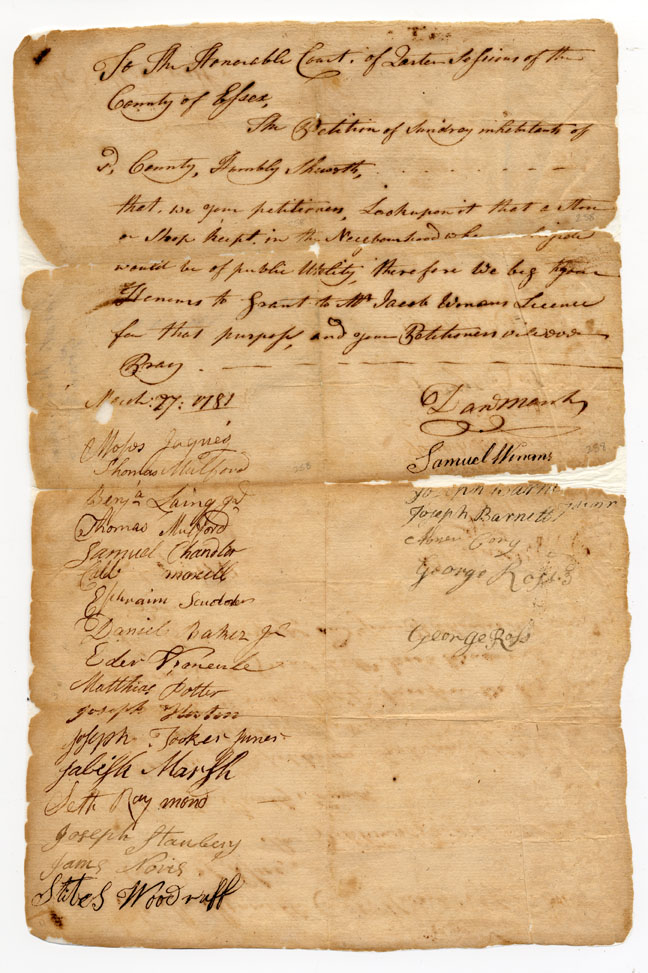 To The Honorable Court. of Qarter Sessions of the
County of Essex,
The Petition of Sundray inhebitents of
Sd. County, Humbly Sheweth,
that, we your petitioners, Look upon it that a Store
or Shop keept. in the Neigbourhood where he
would be of public Utility, therefore We beg your
Honours to Grant to Mr Jacob Winans Licence
for that purpose, and your Petitioners
Pray.
March: 27: 1781
Danl Marsh
Moses Jaques
Samuel Winans
Thomas Mulford
Benja Laing Jr
Joseph Barnett Junr
Thomas Mulford
Samuel Chandler
Abner
George Ross
Ephraim Scudder
Daniel Baker Jr
George Ross
Eder
Matthias Potter
Joseph
Joseph Tooker Juner
Jabish Marsh
Seth Raymond
Joseph Stanbery
Jams
Stites Woodruff
258
258
259